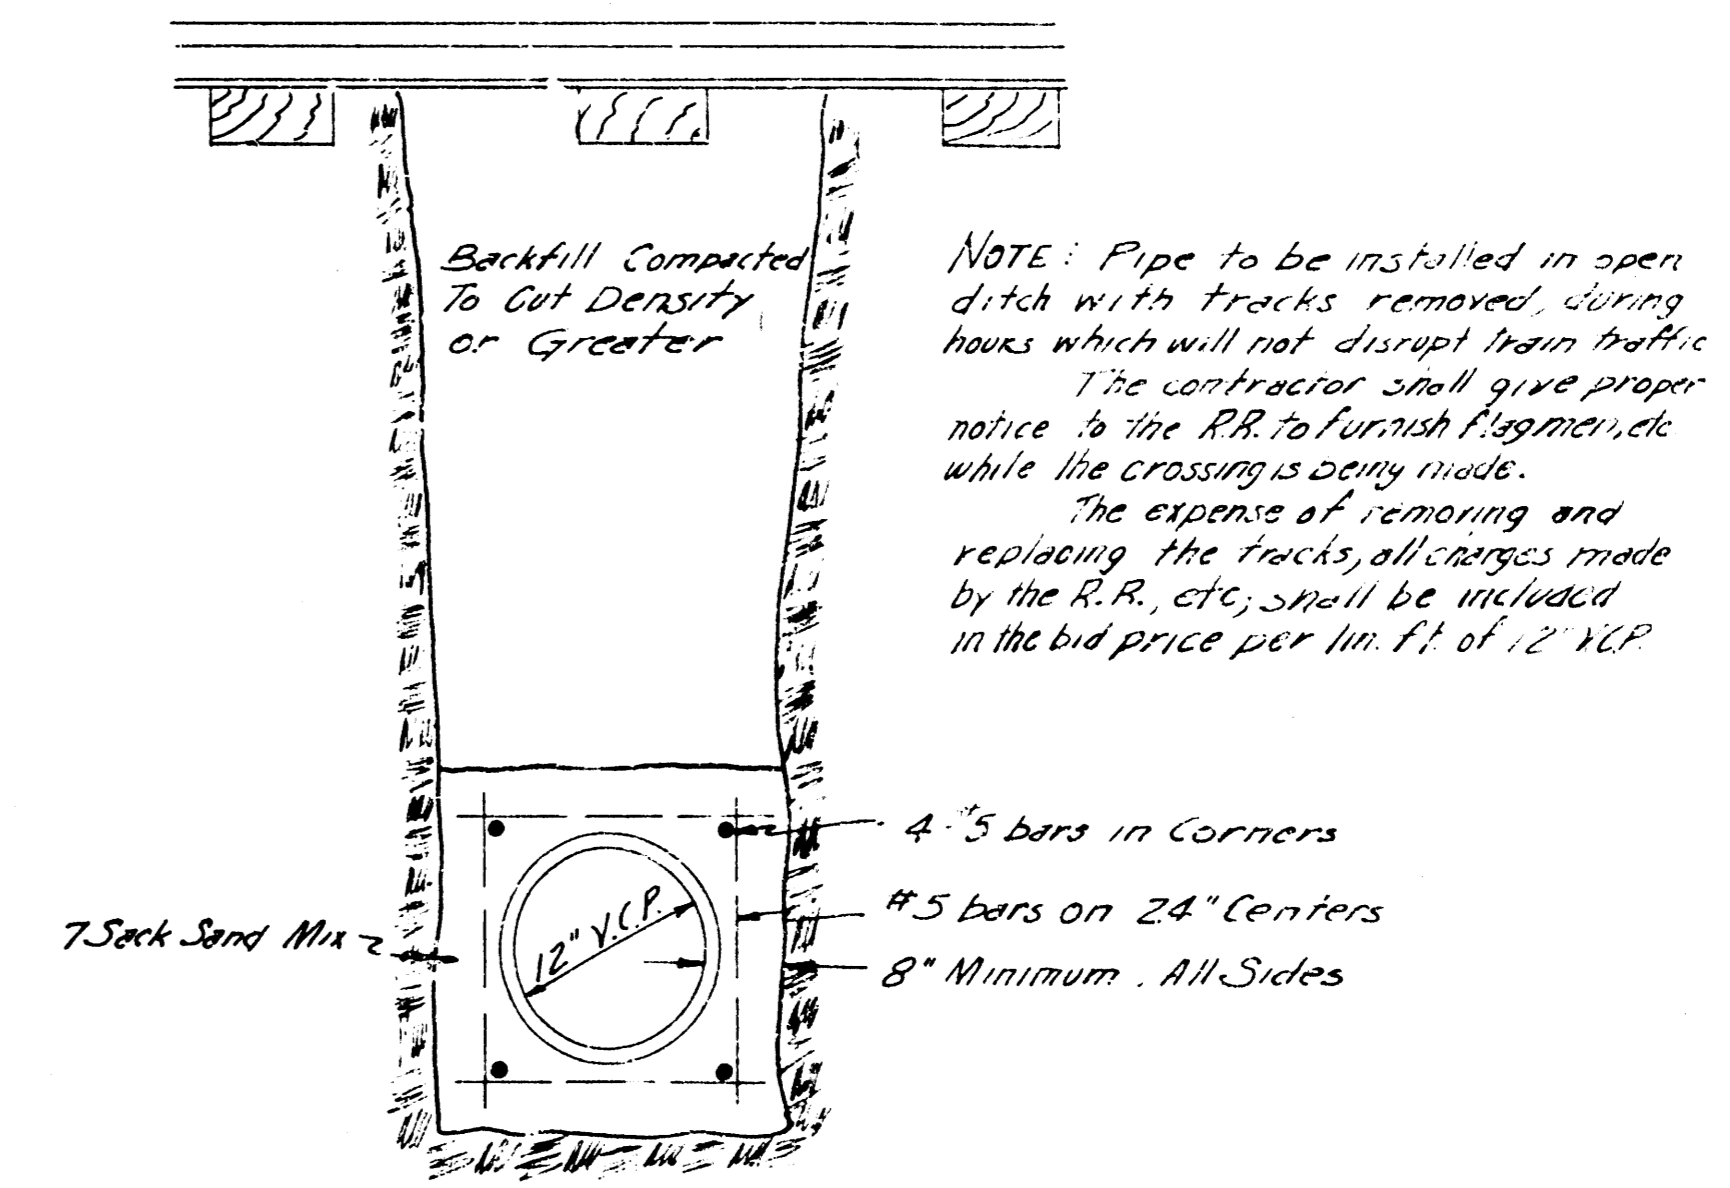 Backfill Compacted
To Cut Density
or Greater
NOTE: Pipe to be installed in open
ditch with tracks removed, during
hours which will not disrupt train traffic
The contractor shall give proper
notice to the R.R. to furnish flagmen, etc
while the crossing is being made.
The expense of removing and
replacing the tracks, all charges made
by the R.R., etc; shall be included
in the bid price per lin. ft. of 12" V.C.P.
4-#5 bars in Corners
#5 bars on 24" Centers
8" Minimum. All Sides
7 Sack Sand Mix
12" V.C.P.